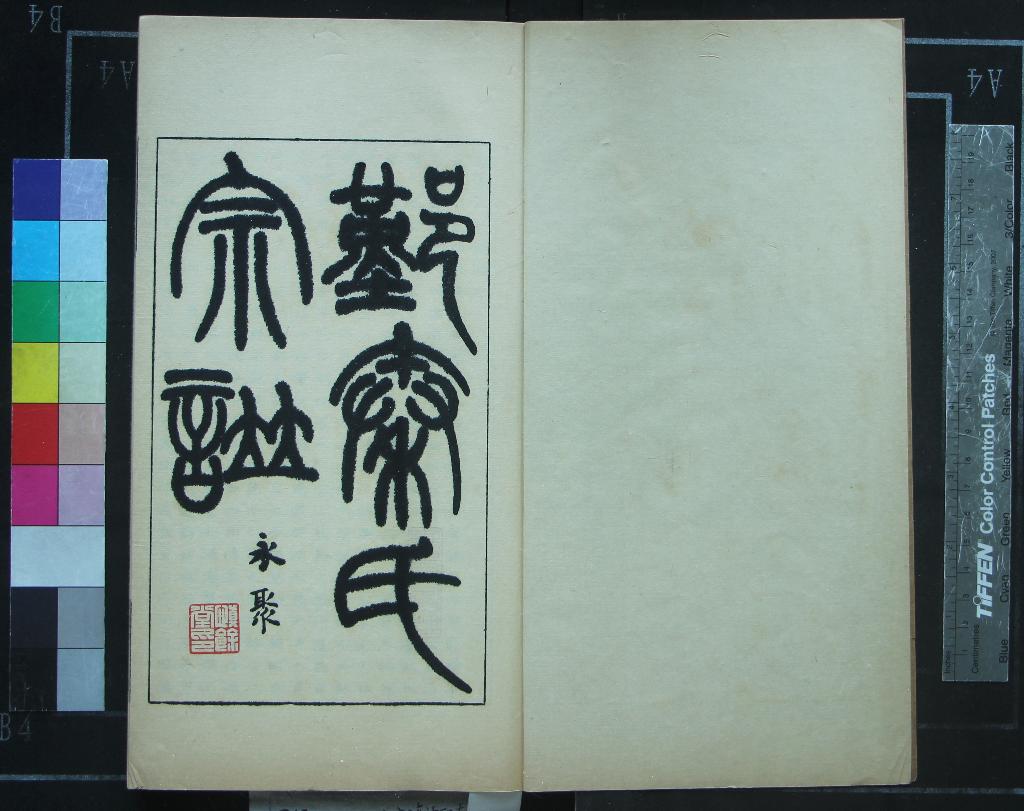 鄞秦氏
宗譜
永聚
B4
A4
A4
B4
TIFFEN Color Control Patches
Blue Cyan Green Yellow Red Magenta White 3/Color Black
Inches
Centimetres